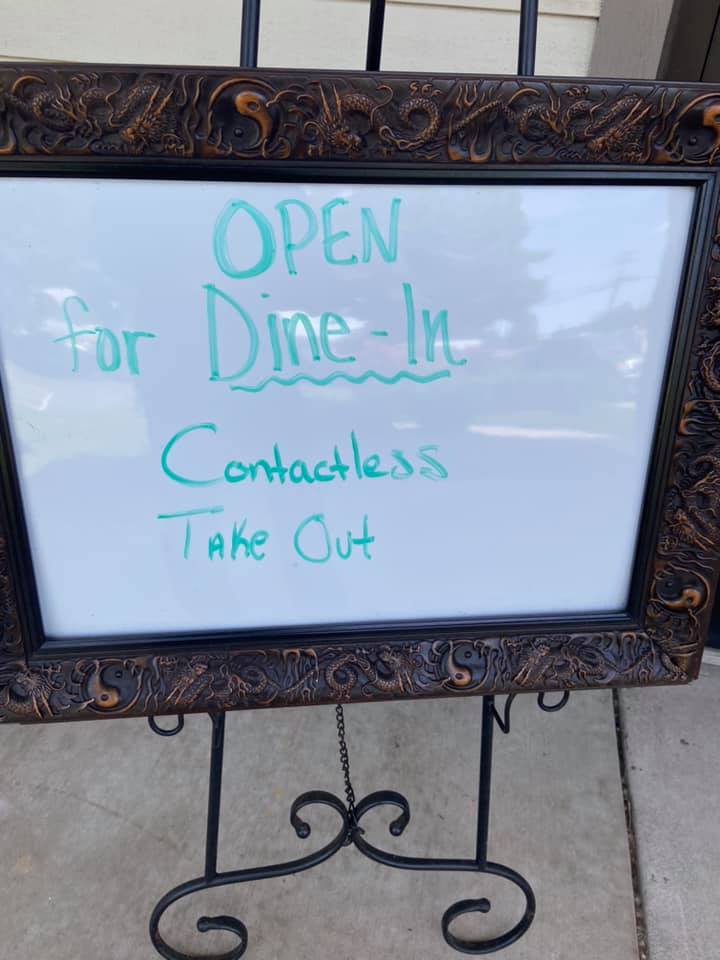 OPEN
for Dine-In
Contactless
Take Out